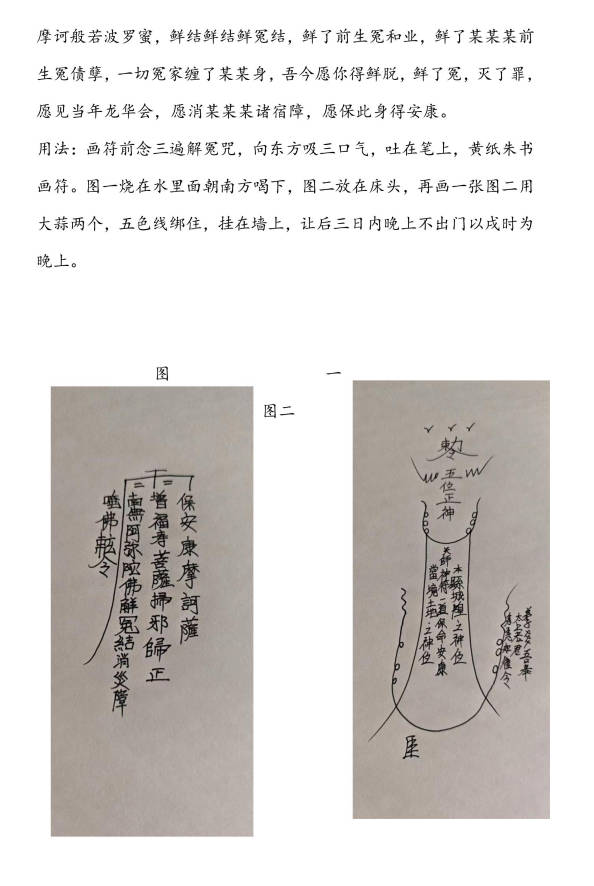 摩诃般若波罗蜜，鲜结鲜结鲜冤结，鲜了前生冤和业，鲜了某某某前
生冤债孽，一切冤家缠了某某身，吾今愿你得鲜脱，鲜了冤，灭了罪，
愿见当年龙华会，愿消某某某诸宿障，愿保此身得安康。
用法：画符前念三遍解冤咒，向东方吸三口气，吐在笔上，黄纸朱书
画符。图一烧在水里面朝南方喝下，图二放在床头，再画一张图二用
大蒜两个，五色线绑住，挂在墙上，让后三日内晚上不出门以戌时为
晚上。
图一
图二
保安康摩訶薩
普福寿菩薩掃邪歸正
南無阿弥陀佛解冤結消災障
唵佛
敕令
五位正神
本縣城隍之神位
天師神符一道保命安康
當境土地之神位